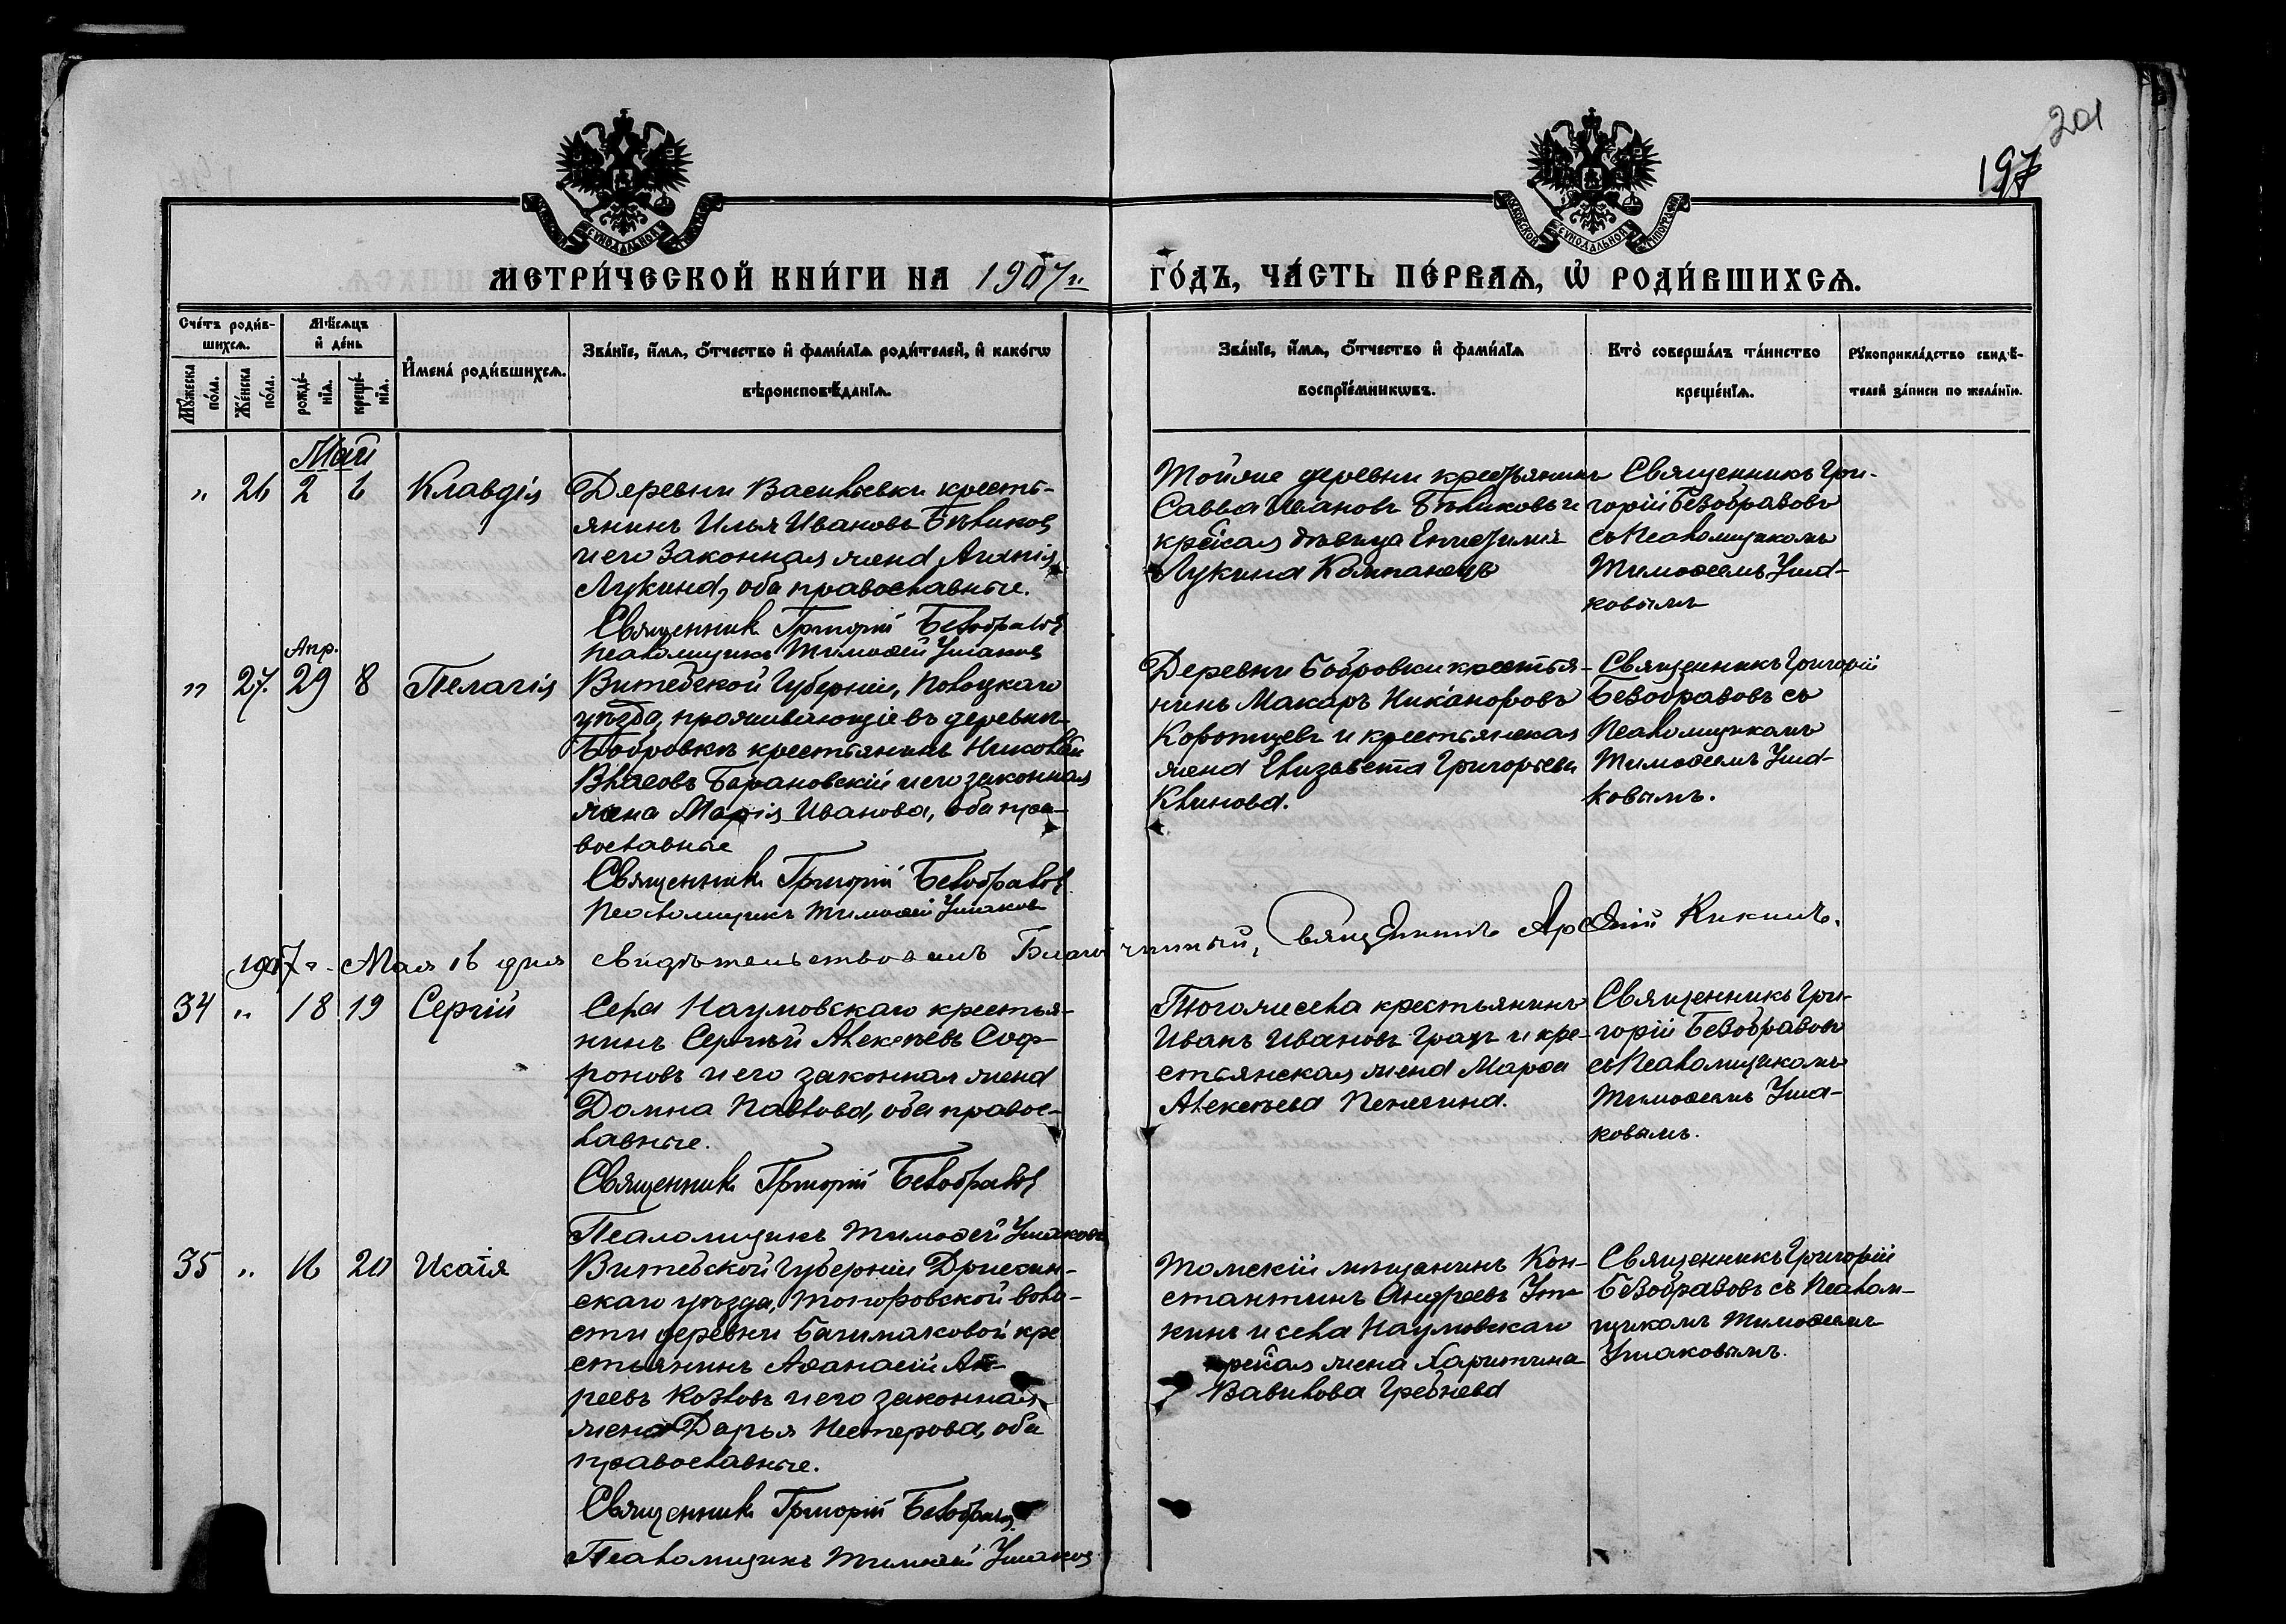 201
197
МОСКОВСКОЙ СѴНОДАЛЬНОЙ ТИПОГРАФІИ
МОСКОВСКОЙ СѴНОДАЛЬНОЙ ТИПОГРАФІИ
МЕТРИ́ЧЕСКОЙ КНИ́ГИ НА 1907 г.
ГО́ДЪ, ЧА́СТЬ ПЕ́РВАѦ, Ѡ҆ РОДИ́ВШИХСѦ.
Сче́тъ роди́в-
шихсѧ.
Мꙋ́жеска по́ла.
Же́нска по́ла.
Мѣ́сѧцъ
и҆ де́нь
рожде́-
нїѧ.
креще́-
нїѧ.
И҆мена̀ роди́вшихсѧ.
Зва́нїе, и҆́мѧ, ѻ҆́тчество и҆ фами́лїѧ роди́телей, и҆ како́гѡ
вѣроисповѣ́данїѧ.
Зва́нїе, и҆́мѧ, ѻ҆́тчество и҆ фами́лїѧ
воспрїе́мникѡвъ.
Кто̀ соверша́лъ та́инство
креще́нїѧ.
Рꙋкоприкла́дство свидѣ́-
телей за́писи по жела́нїю.
Май
" 26 2 6 Клавдія
Деревни Васильевки кресть-
янинъ Илья Ивановъ Бѣликов
и его законная жена Агапія
Лукина, оба православные.
Священникъ Григорій Безобразов
Псаломщикъ Тимоѳей Ушаков
Тойже деревни крестьянинъ
Савва Ивановъ Бѣликовъ и
крейсая дѣвица Евѳимия
Лукина Компанецъ
Священникъ Гри-
горій Безобразовъ
съ Псаломщикомъ
Тимоѳеемъ Уша-
ковымъ
Апр.
" 27. 29 8 Пелагія
Витебской Губерніи, Полоцкаго
уѣзда, проживающіе въ деревни
Бобровкѣ крестьянинъ Николай
Власовъ Барановскій и его законная
жена Марія Иванова, оба пра-
вославные
Священникъ Григорій Безобразов
Псаломщикъ Тимоѳей Ушаков
Деревни Бобровки крестья-
нинъ Макаръ Никаноровъ
Коротцевъ и крестьянская
жена Елизавета Григорьева
Клинова.
Священникъ Григорій
Безобразовъ съ
Псаломщикомъ
Тимоѳеемъ Уша-
ковымъ.
1907 г. Мая 16 дня свидѣтельствовалъ Благочинный, Священникъ Арсеній Кикинъ.
34 " 18 19 Сергій
Села Наумовскаго крестья-
нинъ Сергѣй Алексѣевъ Соф-
роновъ и его законная жена
Домна Павлова, оба правос-
лавные.
Священникъ Григорій Безобразов
Псаломщикъ Тимоѳей Ушаковъ
Тогоже села крестьянинъ
Иванъ Ивановъ и кре-
стьянская жена Марѳа
Алексѣева Пенегина.
Священникъ Гри-
горій Безобразовъ
съ Псаломщикомъ
Тимоѳеемъ Уша-
ковымъ.
35 " 16 20 Исаія
Витебской Губерніи Дриссин-
скаго уѣзда, Топоровской воло-
сти деревни кре
стьянинъ Аѳанасій Ан-
реевъ Козловъ и его законная
жена Дарья Нестерова, оба
православные.
Священникъ Григорій Безобразов
Псаломщикъ Тимоѳей Ушаков
Томскій мѣщанинъ Кон-
стантинъ Андреевъ Ут-
кинъ и села Наумовскаго
крейсая жена Харитина
Вавилова Гребнева
Священникъ Григорій
Безобразовъ съ Псалом-
щикомъ Тимоѳеемъ
Ушаковымъ.